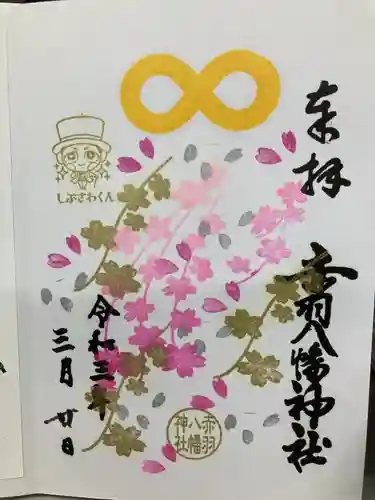 奉拝
赤羽八幡神社
しぶさわくん
令和三年
三月廿日
赤羽
八幡
神社